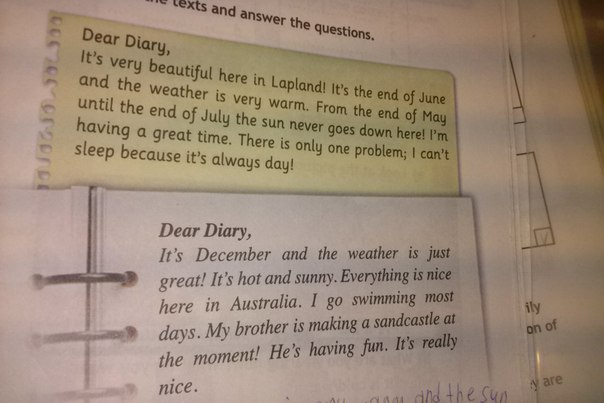 the texts and answer the questions.
Dear Diary,
It's very beautiful here in Lapland! It's the end of June
and the weather is very warm. From the end of May
until the end of July the sun never goes down here! I'm
having a great time. There is only one problem; I can't
sleep because it's always day!
Dear Diary,
It's December and the weather is just
great! It's hot and sunny. Everything is nice
here in Australia. I go swimming most
days. My brother is making a sandcastle at
the moment! He's having fun. It's really
nice.
and the sun
ily
on of
y are